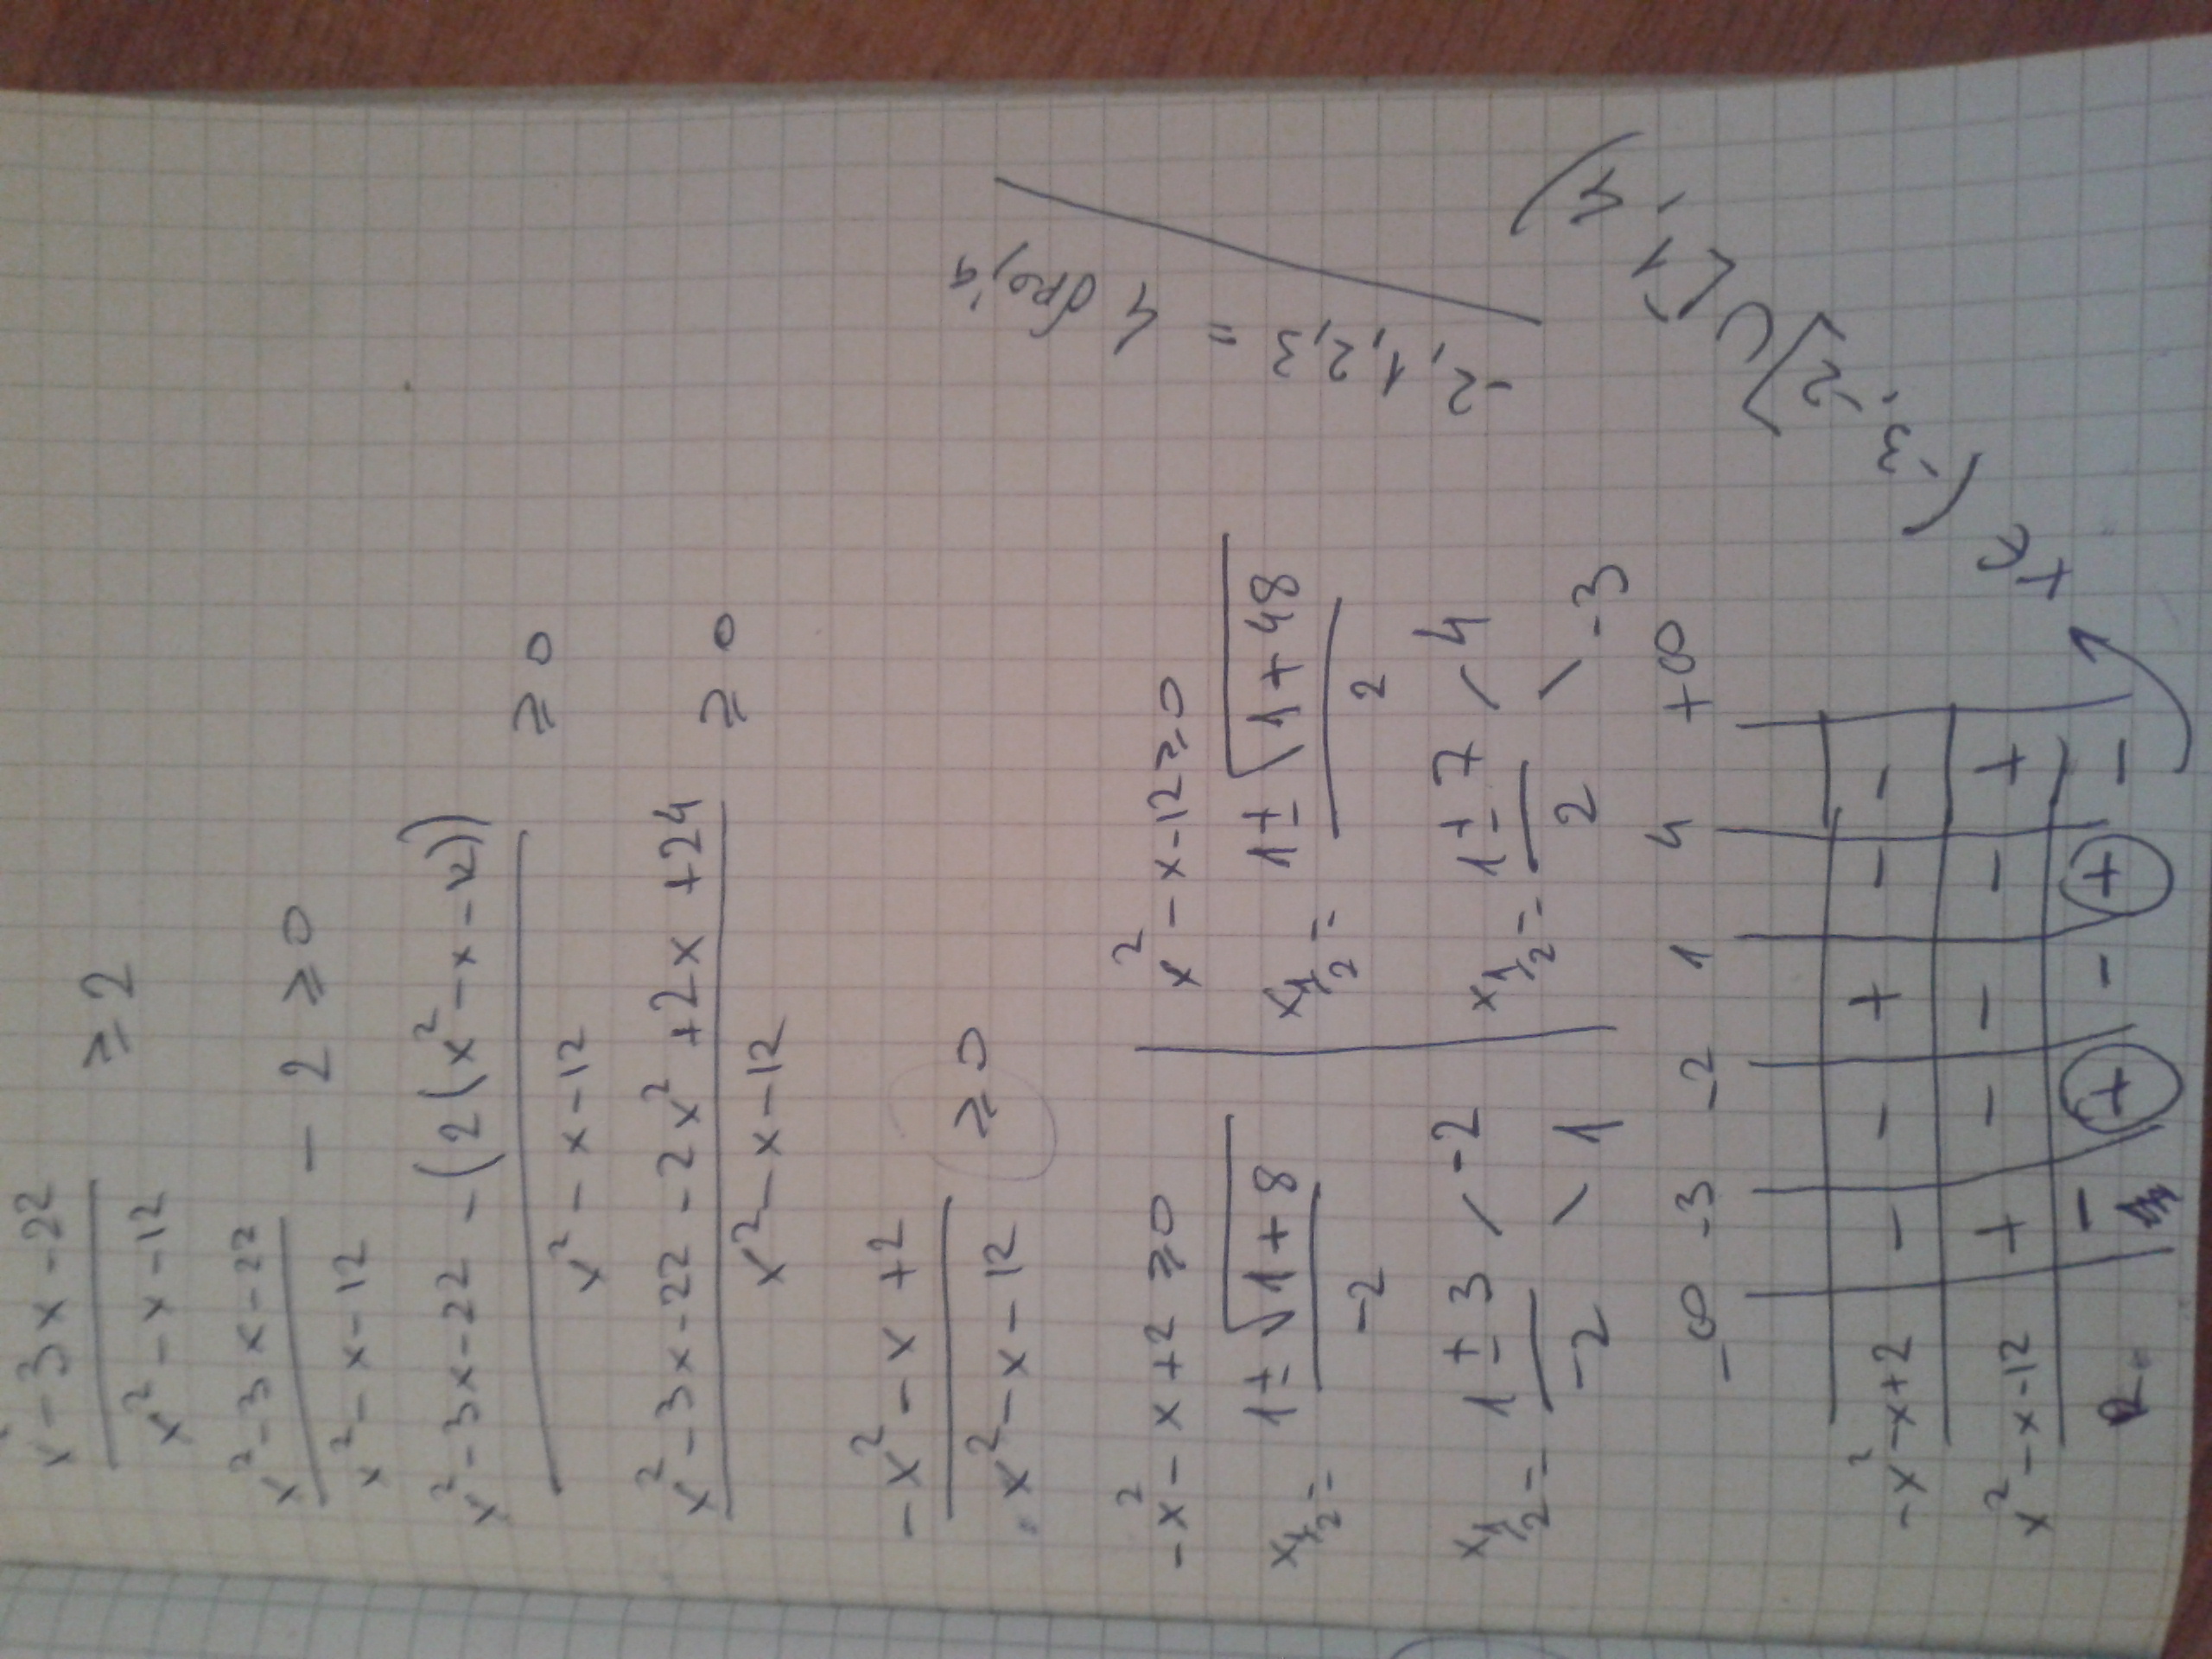 x² - 3x - 22 / x² - x - 12 ≥ 2
x² - 3x - 22 / x² - x - 12 - 2 ≥ 0
x² - 3x - 22 - (2(x² - x - 12)) / x² - x - 12 ≥ 0
x² - 3x - 22 - 2x² + 2x + 24 / x² - x - 12 ≥ 0
-x² - x + 2 / x² - x - 12 ≥ 0
-x² - x + 2 ≥ 0
x1/2 = 1 ± √1 + 8 / -2
x1/2 = 1 ± 3 / -2 / -2 \ 1
x² - x - 12 ≥ 0
x1/2 = 1 ± √1 + 48 / 2
x1/2 = 1 ± 7 / 2 / 4 \ -3
-∞ -3 -2 1 4 +∞
-x² - x + 2 - - + - -
x² - x - 12 + - - - +
R= - + - + -
x ∈ (-3, -2] ∪ [1, 4)
-2, 1, 2, 3 = 4 broja